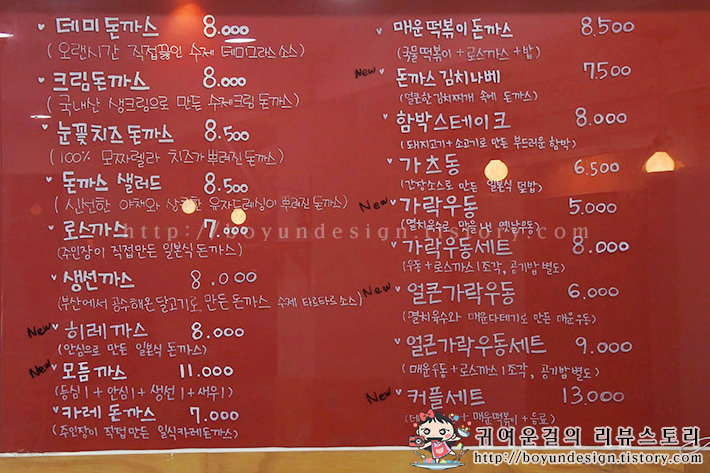 데미돈까스 8.000
(오랜시간 직접끓인 수제 데미그라스소스)
크림돈까스 8.000
(국내산 생크림으로 만든 수제크림 돈까스)
눈꽃치즈돈까스 8.500
(100% 모짜렐라 치즈가 뿌려진 돈까스)
돈까스 샐러드 8.500
(신선한 야채와 상큼한 유자드레싱이 뿌려진 돈까스)
로스까스 7.000
(주인장이 직접만든 일본식 돈까스)
생선까스 8.000
(부산에서 공수해온 달고기로 만든 돈까스 수제 타르타르소스)
New 히레까스 8.000
(안심으로 만든 일본식 돈까스)
New 모듬까스 11.000
(등심1+안심1+생선1+새우1)
카레돈까스 7.000
(주인장이 직접만든 일식카레돈까스)
매운떡볶이돈까스 8.500
(국물떡볶이+로스까스+밥)
New 돈까스김치나베 7.500
(얼큰한김치찌개 속에 돈까스)
함박스테이크 8.000
(돼지고기+소고기로 만든 부드러운 함박)
가츠동 6.500
(간장소스로 만든 일본식 덮밥)
New 가락우동 5.000
(멸치육수로 맛을 낸 옛날우동)
가락우동세트 8.000
(우동+로스까스1조각, 공기밥 별도)
New 얼큰가락우동 6.000
(멸치육수와 매운다테기로 만든 매운우동)
얼큰가락우동세트 9.000
(매운우동+로스까스1조각, 공기밥 별도)
New 커플세트 13.000
+ 매운떡볶이+음료)
http://boyundesign.tistory.com
귀여운걸의 리뷰스토리
http://boyundesign.tistory.com